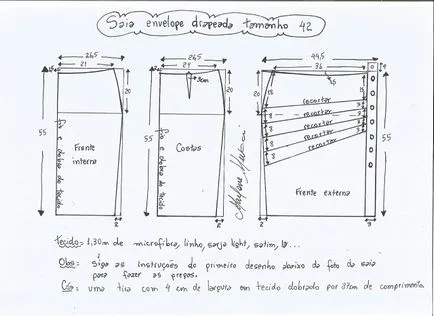 Saia envelope drapeada tamanho 42
26,5
21
26,5
21
44,5
36
3cm
20
20
20
18
15
1,5
recortar
recortar
recortar
recortar
recortar
8
8
8
3
3
3
3
55
55
55
Frente interna
fio e dobra do tecido
Costas
fio e dobra do tecido
Marlene Mukai
Frente externa
2
2
2
3
Tecido = 1,30m de microfibra, linho, sarja light, satim, lã ...
Obs: Siga as instruções do primeiro desenho abaixo da foto da saia
para fazer as pregas.
Cós = uma tira com 4 cm de largura em tecido dobrado por 37cm de comprimento.